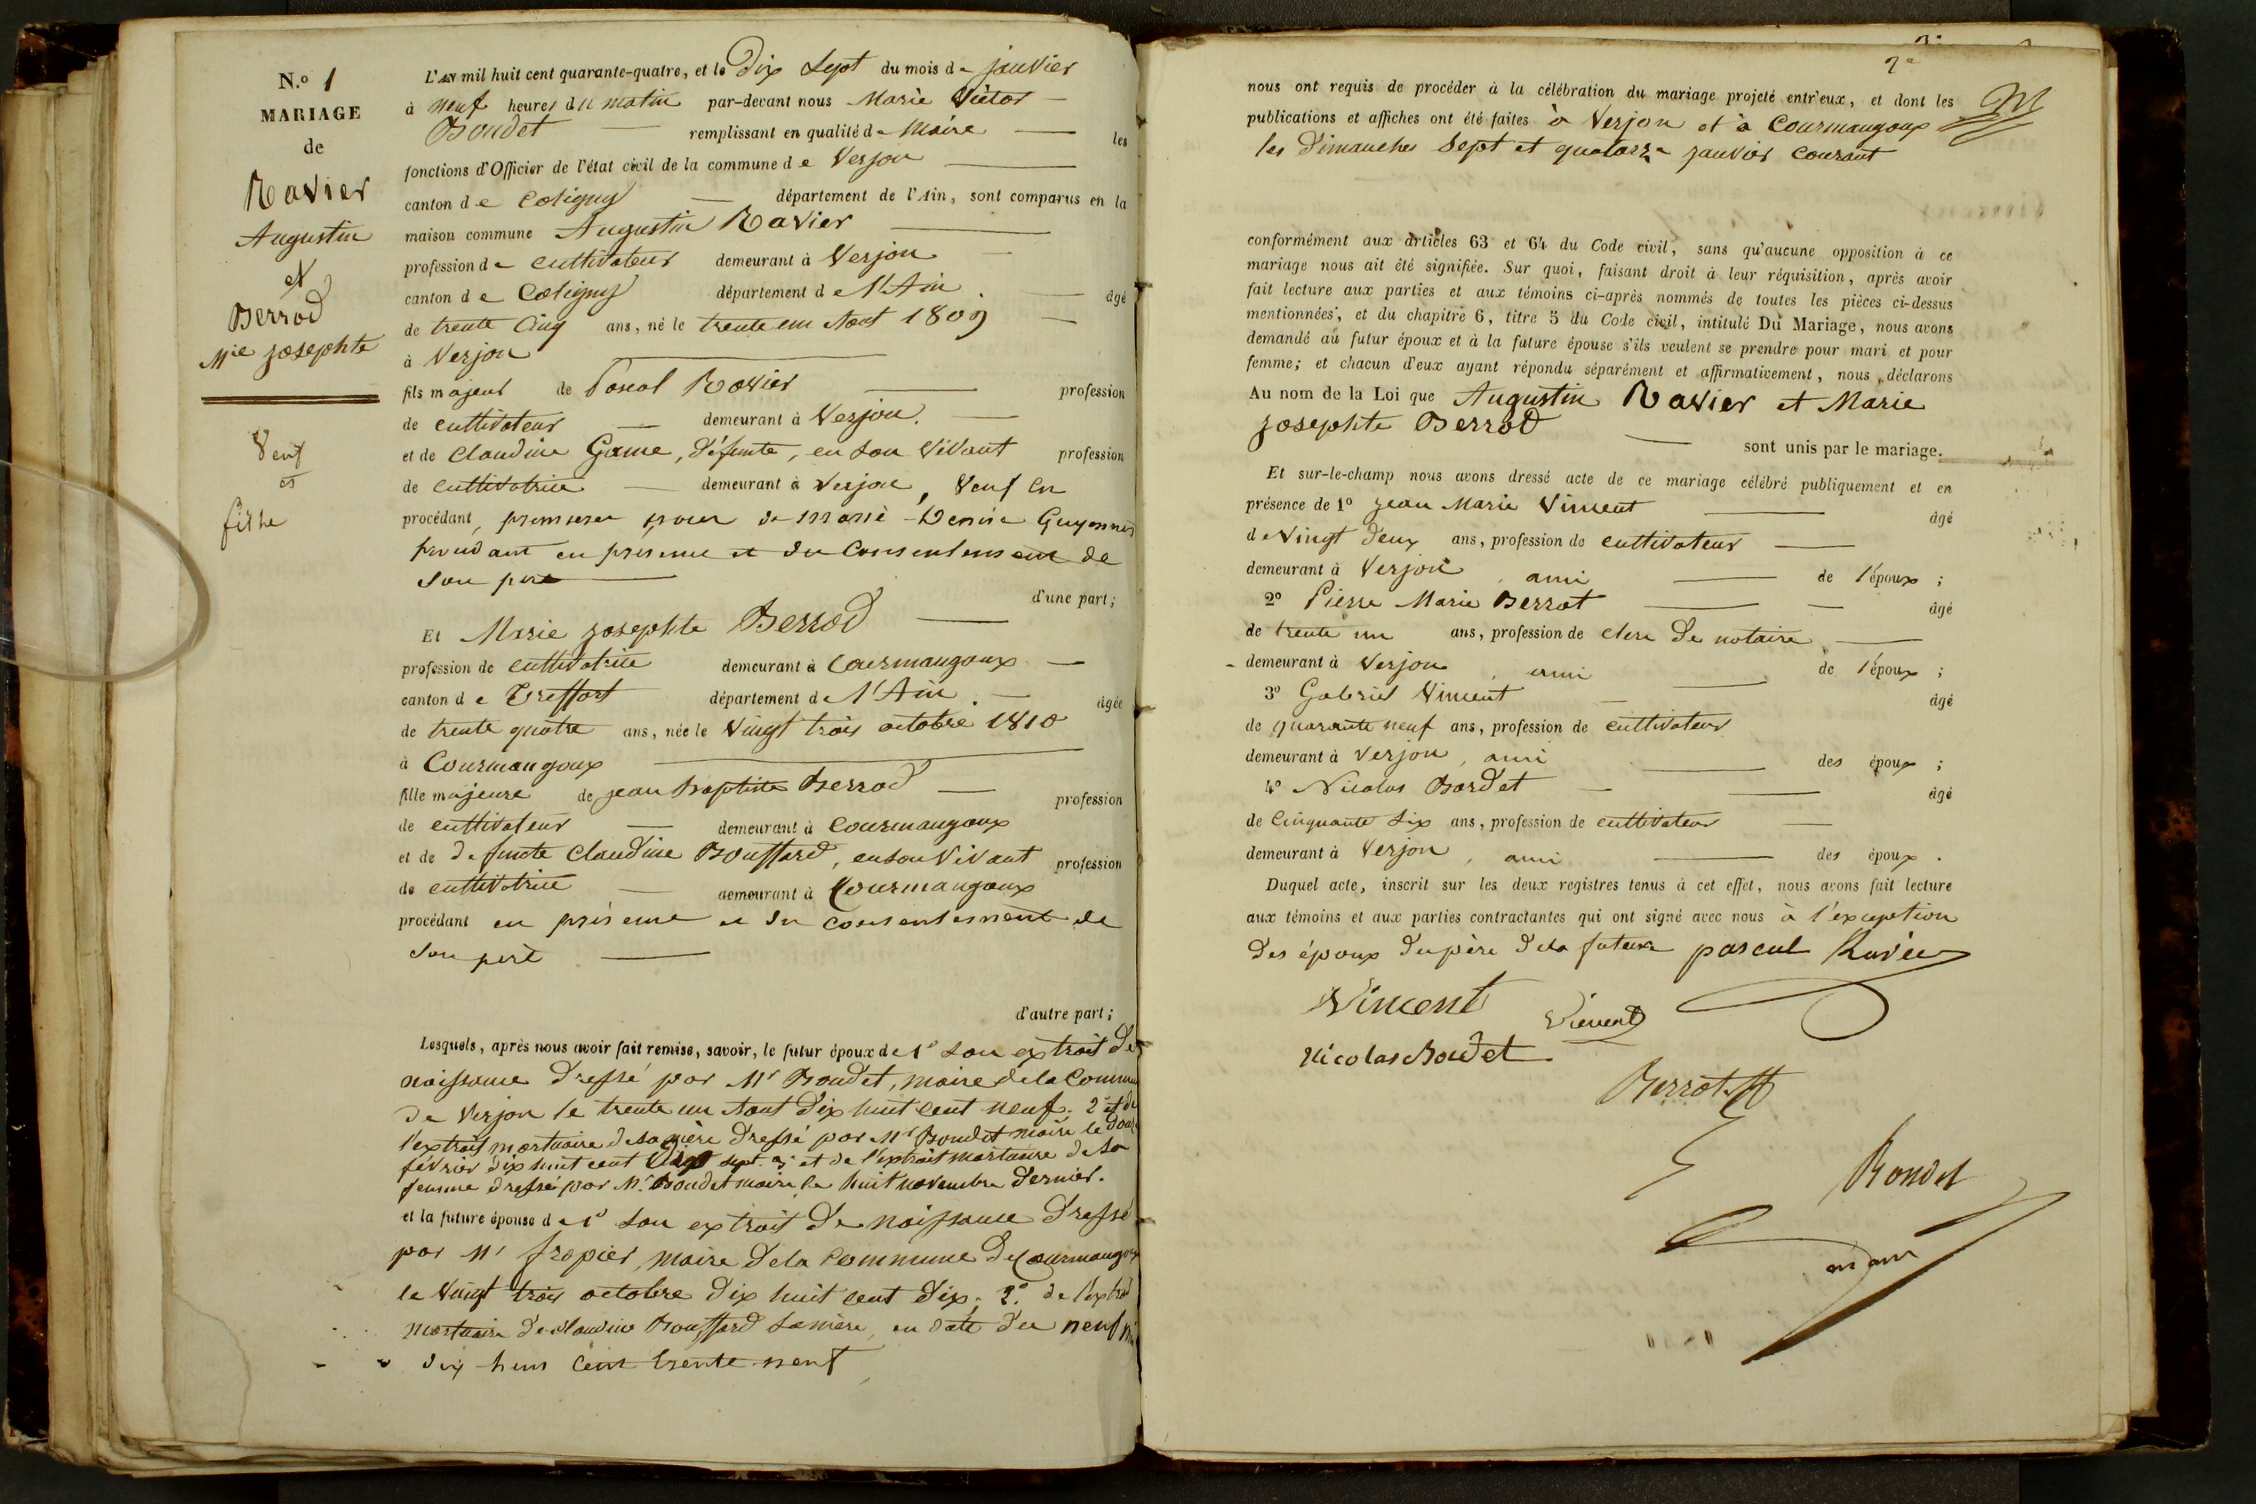 N.o 1
MARIAGE
de
Ravier
Augustin
et
Berrod
Mie josephte
Veuf
et
fille
L'an mil huit cent quarante-quatre, et le Dix Sept du mois de janvier
à neuf heures du matin par-devant nous Marie Victor
Boudet remplissant en qualité de Maire les
fonctions d'Officier de l'état civil de la commune de Verjon
canton de Coligny département de l'Ain, sont comparus en la
maison commune Augustin Ravier
profession de cultivateur demeurant à Verjon
canton de Coligny département de l'Ain âgé
de trente Cinq ans, né le trente un Aout 1809
à Verjon
fils majeur de Pascal Ravier profession
de cultivateur demeurant à Verjon.
et de Claudine Game, défunte, en son Vivant profession
de cultivatrice demeurant à Verjon, Veuf en
procédant, de Denise Guyonnet
en présence et du Consentement de
son père
d'une part;
Et Marie josephte Berrod
profession de cultivatrice demeurant à Courmangoux
canton de Treffort département de l'Ain âgée
de trente quatre ans, née le Vingt trois octobre 1810
à Courmangoux
fille majeure de jean baptiste Berrod profession
de cultivateur demeurant à Courmangoux
et de defunte Claudine Bouffard, en son Vivant profession
de cultivatrice demeurant à Courmangoux
procédant en présence et du consentement de
son père
d'autre part;
Lesquels, après nous avoir fait remise, savoir, le futur époux de 1o Son extrait de
naissance dressé par Mr Boudet, maire de la Commune
de Verjon le trente un Aout dix huit cent neuf. 2o et de
l'extrait mortuaire de sa mère dressé par Mr Boudet maire le
février dix huit cent Vingt sept. 3o et de l'extrait mortuaire de sa
femme dressé par Mr Boudet maire le huit novembre dernier.
et la future épouse de 1o Son extrait de naissance dressé
par Mr fropier, maire de la Commune de Courmangoux
le Vingt trois octobre dix huit cent dix. 2o de l'extrait
mortuaire de Claudine Bouffard sa mère, en date du neuf
dix huit cent trente neuf
2e
nous ont requis de procéder à la célébration du mariage projeté entr'eux, et dont les
publications et affiches ont été faites à Verjon et à Courmangoux
les Dimanches Sept et quatorze janvier courant
conformément aux articles 63 et 64 du Code civil, sans qu'aucune opposition à ce
mariage nous ait été signifiée. Sur quoi, faisant droit à leur réquisition, après avoir
fait lecture aux parties et aux témoins ci-après nommés de toutes les pièces ci-dessus
mentionnées, et du chapitre 6, titre 5 du Code civil, intitulé Du Mariage, nous avons
demandé au futur époux et à la future épouse s'ils veulent se prendre pour mari et pour
femme; et chacun d'eux ayant répondu séparément et affirmativement, nous déclarons
Au nom de la Loi que Augustin Ravier et Marie
josephte Berrod
sont unis par le mariage.
Et sur-le-champ nous avons dressé acte de ce mariage célébré publiquement et en
présence de 1o jean Marie Vincent âgé
de Vingt deux ans, profession de cultivateur
demeurant à Verjon, ami de l'époux;
2o Pierre Marie Berrot âgé
de trente un ans, profession de clerc de notaire
demeurant à Verjon, ami de l'époux;
3o Gabriel Vincent âgé
de quarante neuf ans, profession de cultivateur
demeurant à Verjon, ami des époux;
4o Nicolas Bordet âgé
de Cinquante Six ans, profession de cultivateur
demeurant à Verjon, ami des époux.
Duquel acte, inscrit sur les deux registres tenus à cet effet, nous avons fait lecture
aux témoins et aux parties contractantes qui ont signé avec nous à l'exception
des époux du père de la future pascal Ravier
Vincent
Vincent
Nicolas Boudet
Berrot
Boudet
maire